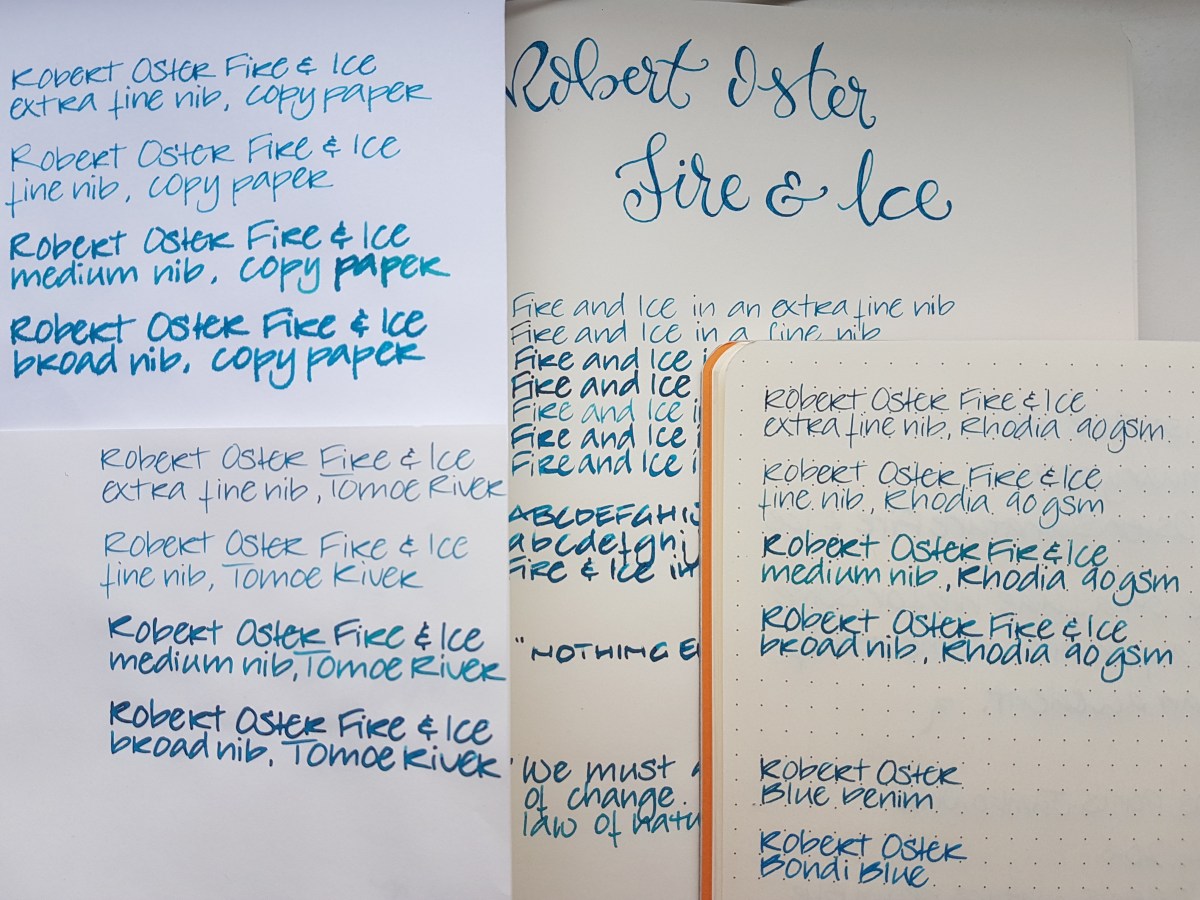 Robert Oster Fire & Ice
extra fine nib, copy paper
Robert Oster Fire & Ice
fine nib, copy paper
Robert Oster Fire & Ice
medium nib, copy paper
Robert Oster Fire & Ice
broad nib, copy paper
Robert Oster Fire & Ice
extra fine nib, Tomoe River
Robert Oster Fire & Ice
fine nib, Tomoe River
Robert Oster Fire & Ice
medium nib, Tomoe River
Robert Oster Fire & Ice
broad nib, Tomoe River
Robert Oster
Fire & Ice
Fire and Ice in an extra fine nib
Fire and Ice in a fine nib
Fire and Ice
Fire and Ice
Fire and Ice
Fire and Ice
Fire and Ice
ABCDEFGHIJ
abcdefghij
Fire & Ice in
"NOTHING
"We must
of change
law of
Robert Oster Fire & Ice
extra fine nib, Rhodia 90gsm
Robert Oster Fire & Ice
fine nib, Rhodia 90gsm
Robert Oster Fir & Ice
medium nib, Rhodia 90gsm
Robert Oster Fire & Ice
broad nib, Rhodia 90gsm
Robert Oster
Blue Denim
Robert Oster
Bondi Blue